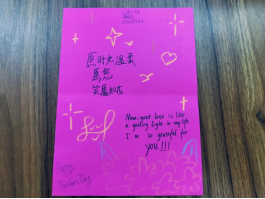 愿时光温柔
焉您
笑靥如花
Love
Mom, your love is like
a guiding light in my life
I'm so grateful for
YOU!!!
Happy
Mother's Day